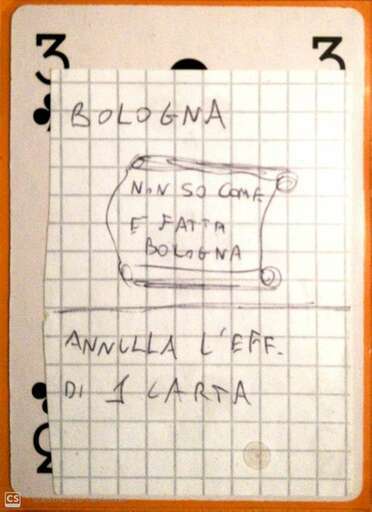 3 3
BOLOGNA
NON SO COME
E FATTA
BOLOGNA
ANNULLA L'EFF.
DI 1 CARTA
CS